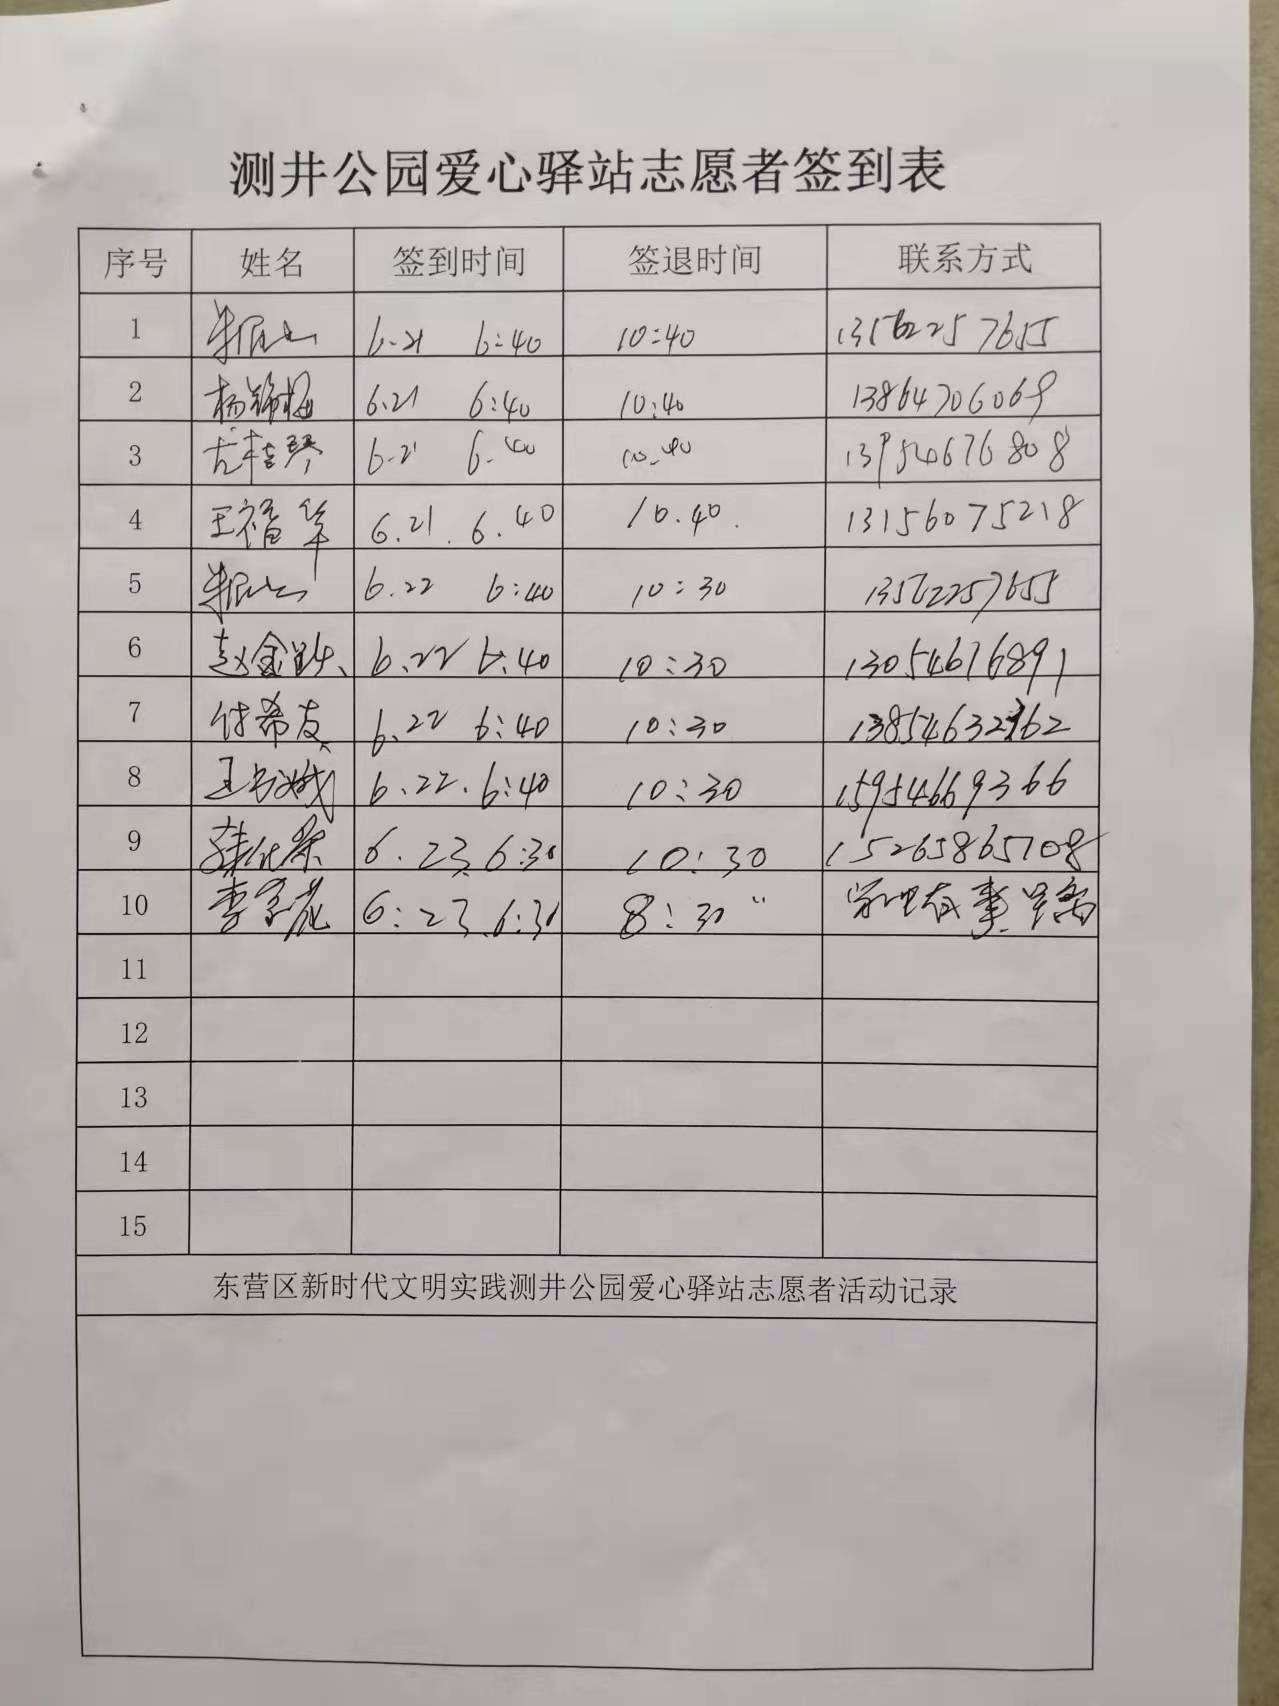 测井公园爱心驿站志愿者签到表
序号 姓名 签到时间 签退时间 联系方式
1 6.21 6:40 10:40 13562257655
2 杨锦梅 6.21 6:40 10:40 13864706069
3 尤桂琴 6.21 6.40 10.40 13954676808
4 王福华 6.21. 6.40 10.40. 13156075218
5 6.22 6:40 10:30 13562257655
6 赵金 6.22 6:40 10:30 13054676891
7 付希友 6.22 6:40 10:30 13854632362
8 王 6.22. 6:40 10:30 15954669366
9 6.23. 6:30 10:30 15265865708
10 李 花 6:23. 6:30 8:30 家里有事 早离
11
12
13
14
15
东营区新时代文明实践测井公园爱心驿站志愿者活动记录